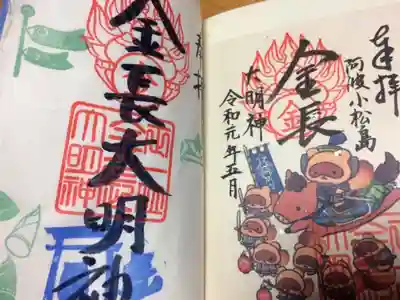 奉拝
阿波小松島
金長
大明神
令和元年五月
奉拝
金長大明神